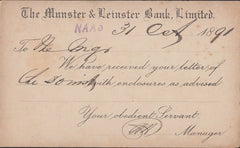 The Munster & Leinster Bank, Limited.
NAAS
31 Oct 1891
To The Mngr
We have received your letter of
the 30th with enclosures as advised
Your obedient Servant
Manager